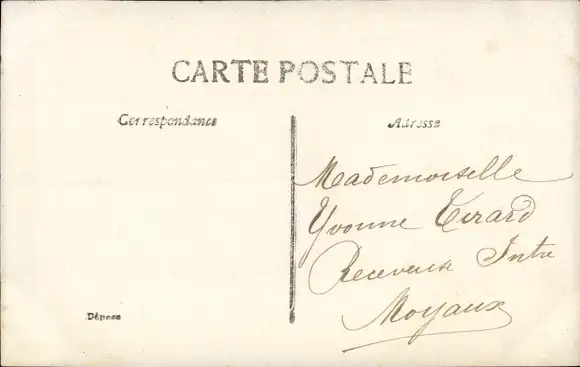 CARTE POSTALE
Correspondance
Adresse
Mademoiselle
Yvonne Tirard
Receveuse Intre
Moyaux
Déposé